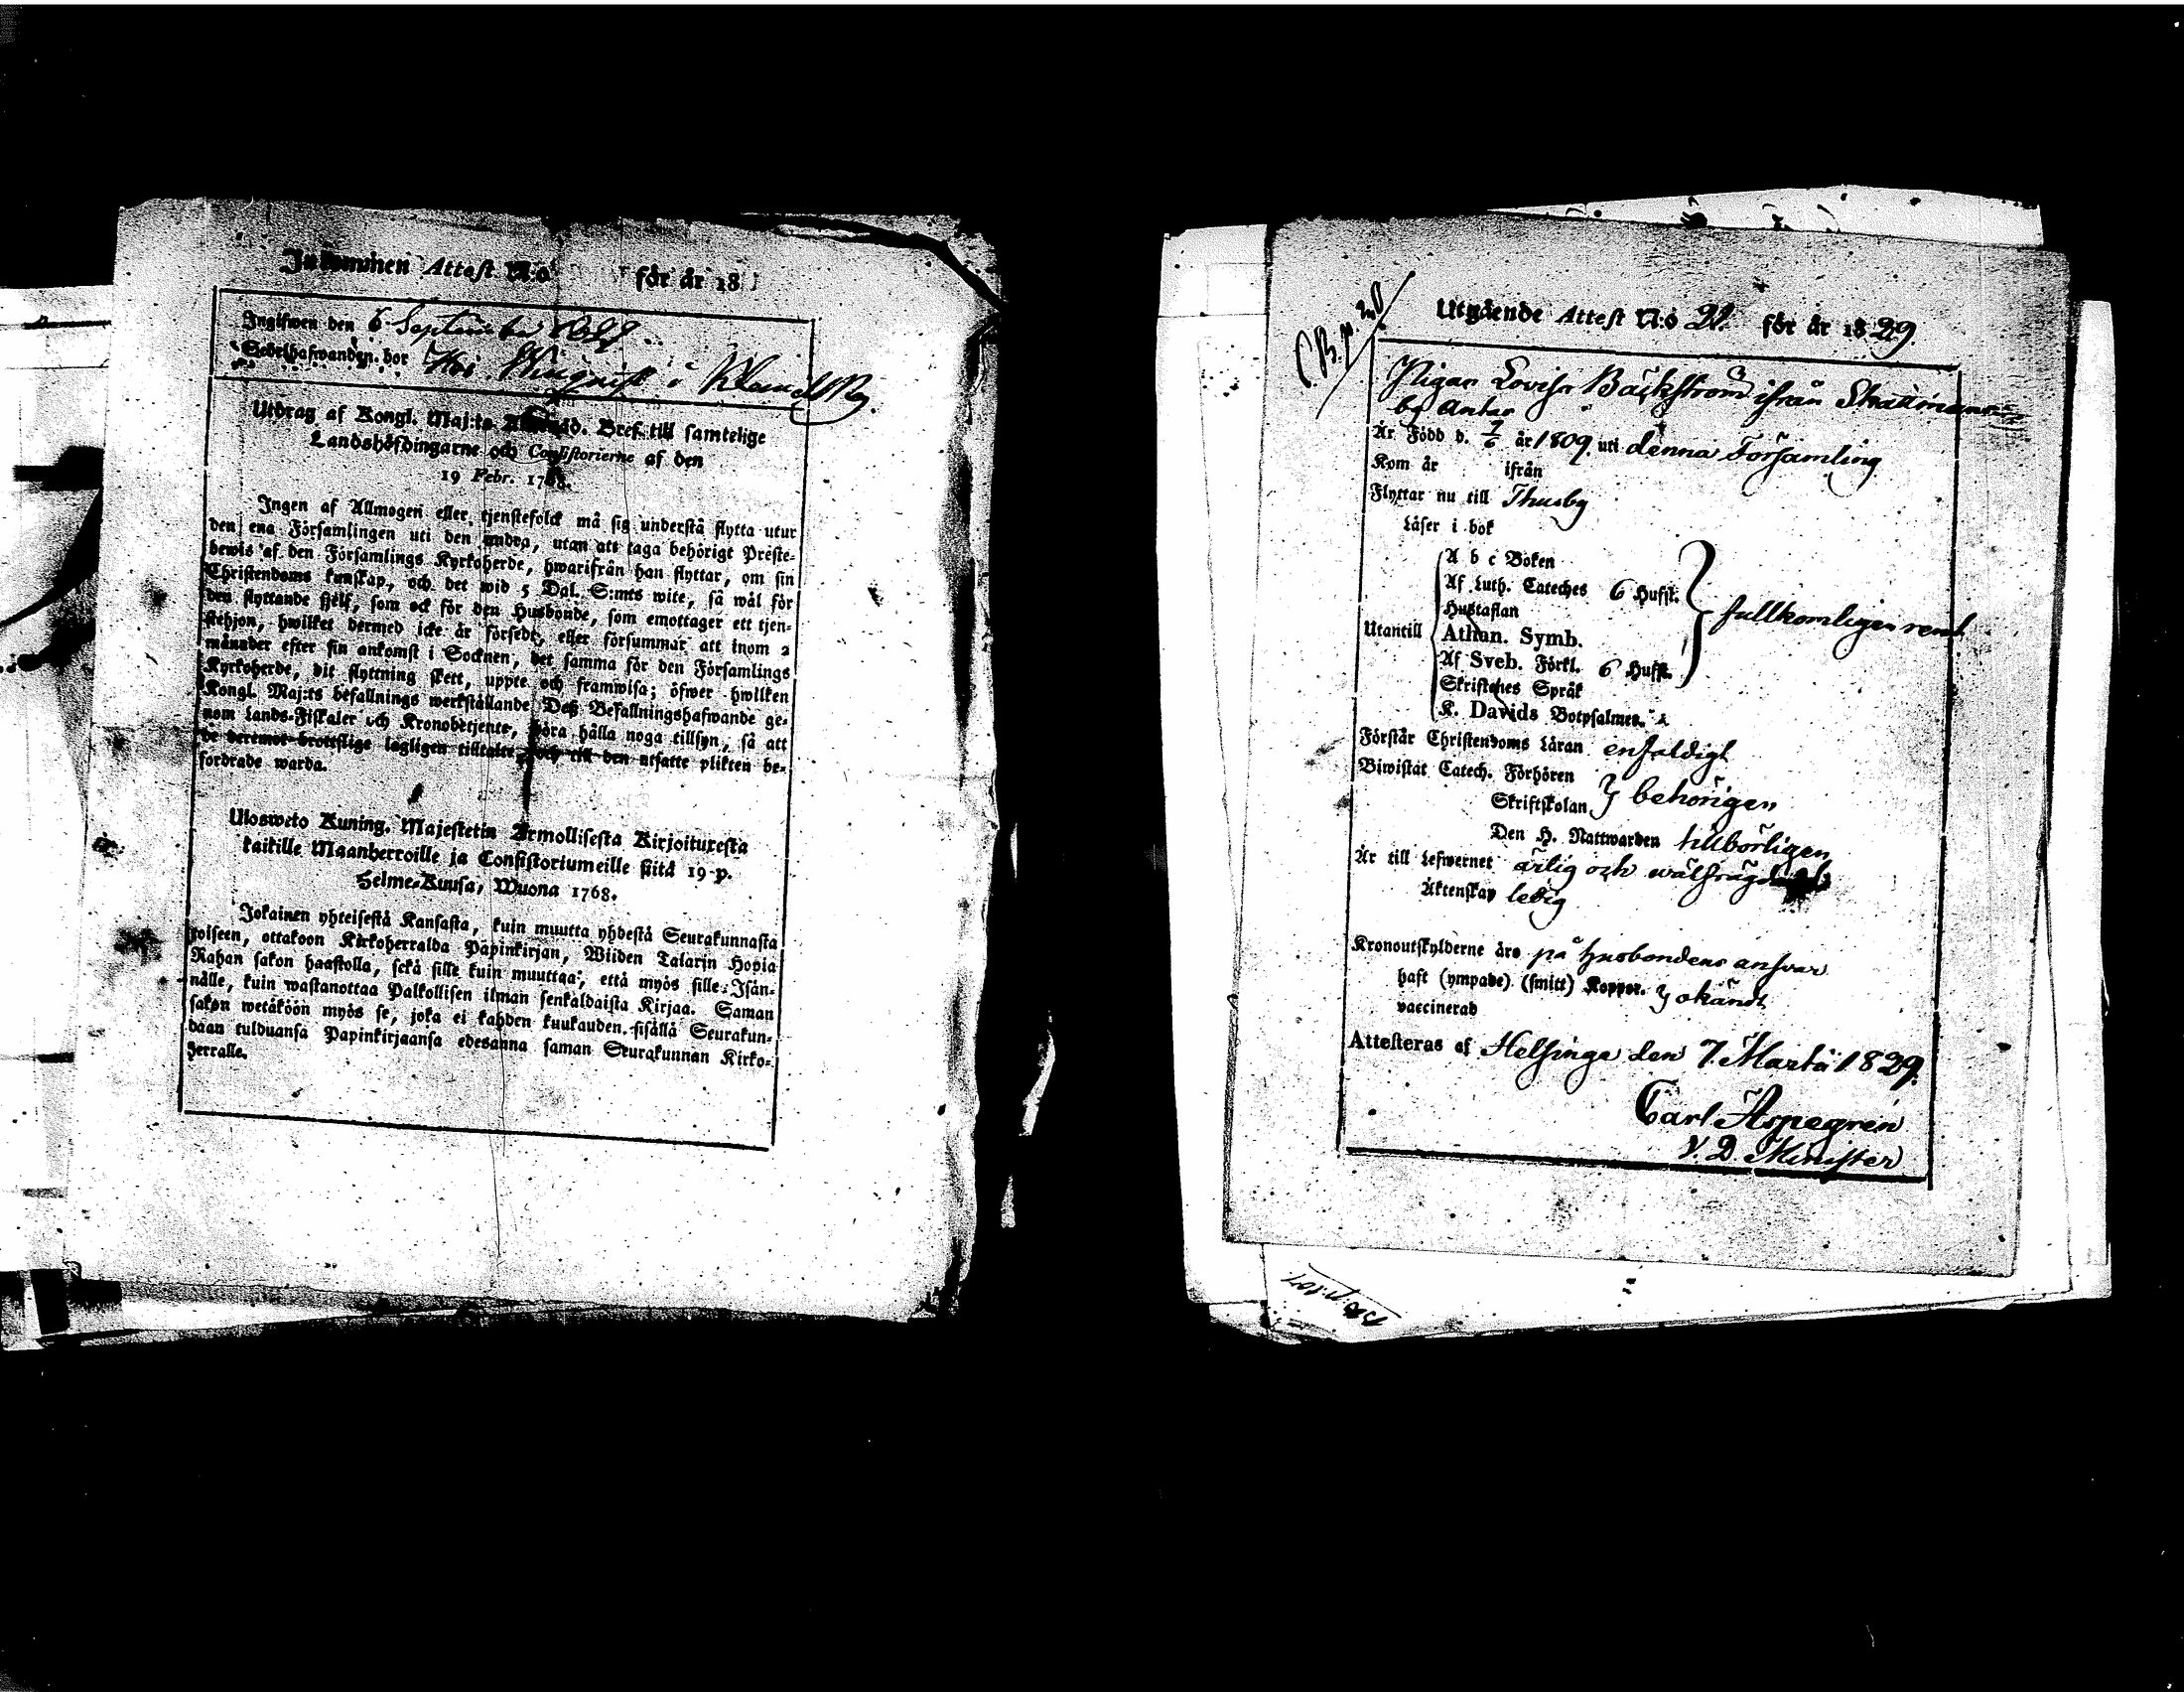 Inkommen Attest N:o för år 18
Ingifwen den 6 September
hos Winqvist i Klaus
Utdrag af Kongl. Maj:ts Bref till samtelige
Landshöfdingarne och Consistorierne af den
19 Febr. 1768.
Ingen af Allmogen eller tjenstefolck må sig understå flytta utur
den ena Församlingen uti den andra, utan att taga behörigt Preste-
bewis af den Församlings Kyrkoherde, hwarifrån han flyttar, om sin
Christendoms kunskap, och det wid 5 Dal. S:mts wite, så wäl för
den flyttande sjelf, som ock för den Husbonde, som emottager ett tjen-
stehjon, hwilket dermed icke är försedt, eller försummar att inom 2
månader efter sin ankomst i Socknen, det samma för den Församlings
Kyrkoherde, dit flyttning skett, uppte och framwisa; öfwer hwilken
Kongl. Maj:ts befallnings werkställande Deß Befallningshafwande ge-
nom Lands-Fiskaler och Kronobetjente, böra hålla noga tillsyn, så att
de deremot brottslige lagligen tilltalte, och till den utsatte plikten be-
fordrade warda.
Ulosweto Kuning. Majestetin Armollisesta Kirjoituxesta
kaikille Maanherroille ja Consistoriumeille siitä 19 p.
Helme-Kuusa, Wuona 1768.
Jokainen yhteisestä Kansasta, kuin muutta yhdestä Seurakunnasta
toiseen, ottakoon Kirkoherralda Papinkirjan, Wiiden Talarin Hopia
Rahan sakon haastolla, sekä sille kuin muuttaa; että myös sille Isän-
nälle, kuin wastanottaa Palkollisen ilman senkaldaista Kirjaa. Saman
sakon wetäköön myös se, joka ei kahden kuukauden sisällä Seurakun-
daan tulduansa Papinkirjaansa edesanna saman Seurakunnan Kirko-
herralle.
Utgående Attest N:o 22. för år 1829
Pigan Lovisa Bäckström ifrån
by Antas
Är Född d. 7/6 år 1809. uti denna Församling
Kom år ifrån
Flyttar nu till Thusby
Läser i bok
A b c Boken
Af Luth. Cateches 6 Hufst.
Hustaflan
fullkomligen rent
Utantill Athan. Symb.
Af Sveb. Förkl. 6 Hufst.
Skriftenes Språk
K. Davids Botpsalmer.
Förstår Christendoms Läran enfaldigt
Biwistat Catech. Förhören
Skriftskolan } behörigen
Den H. Nattwarden tillbörligen
Är till Lefwernet ärlig och wälfrägdad
Äktenskap ledig
Kronoutskylderne äro på husbondens ansvar
haft (ympade) (smitt) Koppor. } okändt
vaccinerad
Attesteras af Helsinge den 7. Martii 1829.
Carl Aspegrén
V. D. Minister